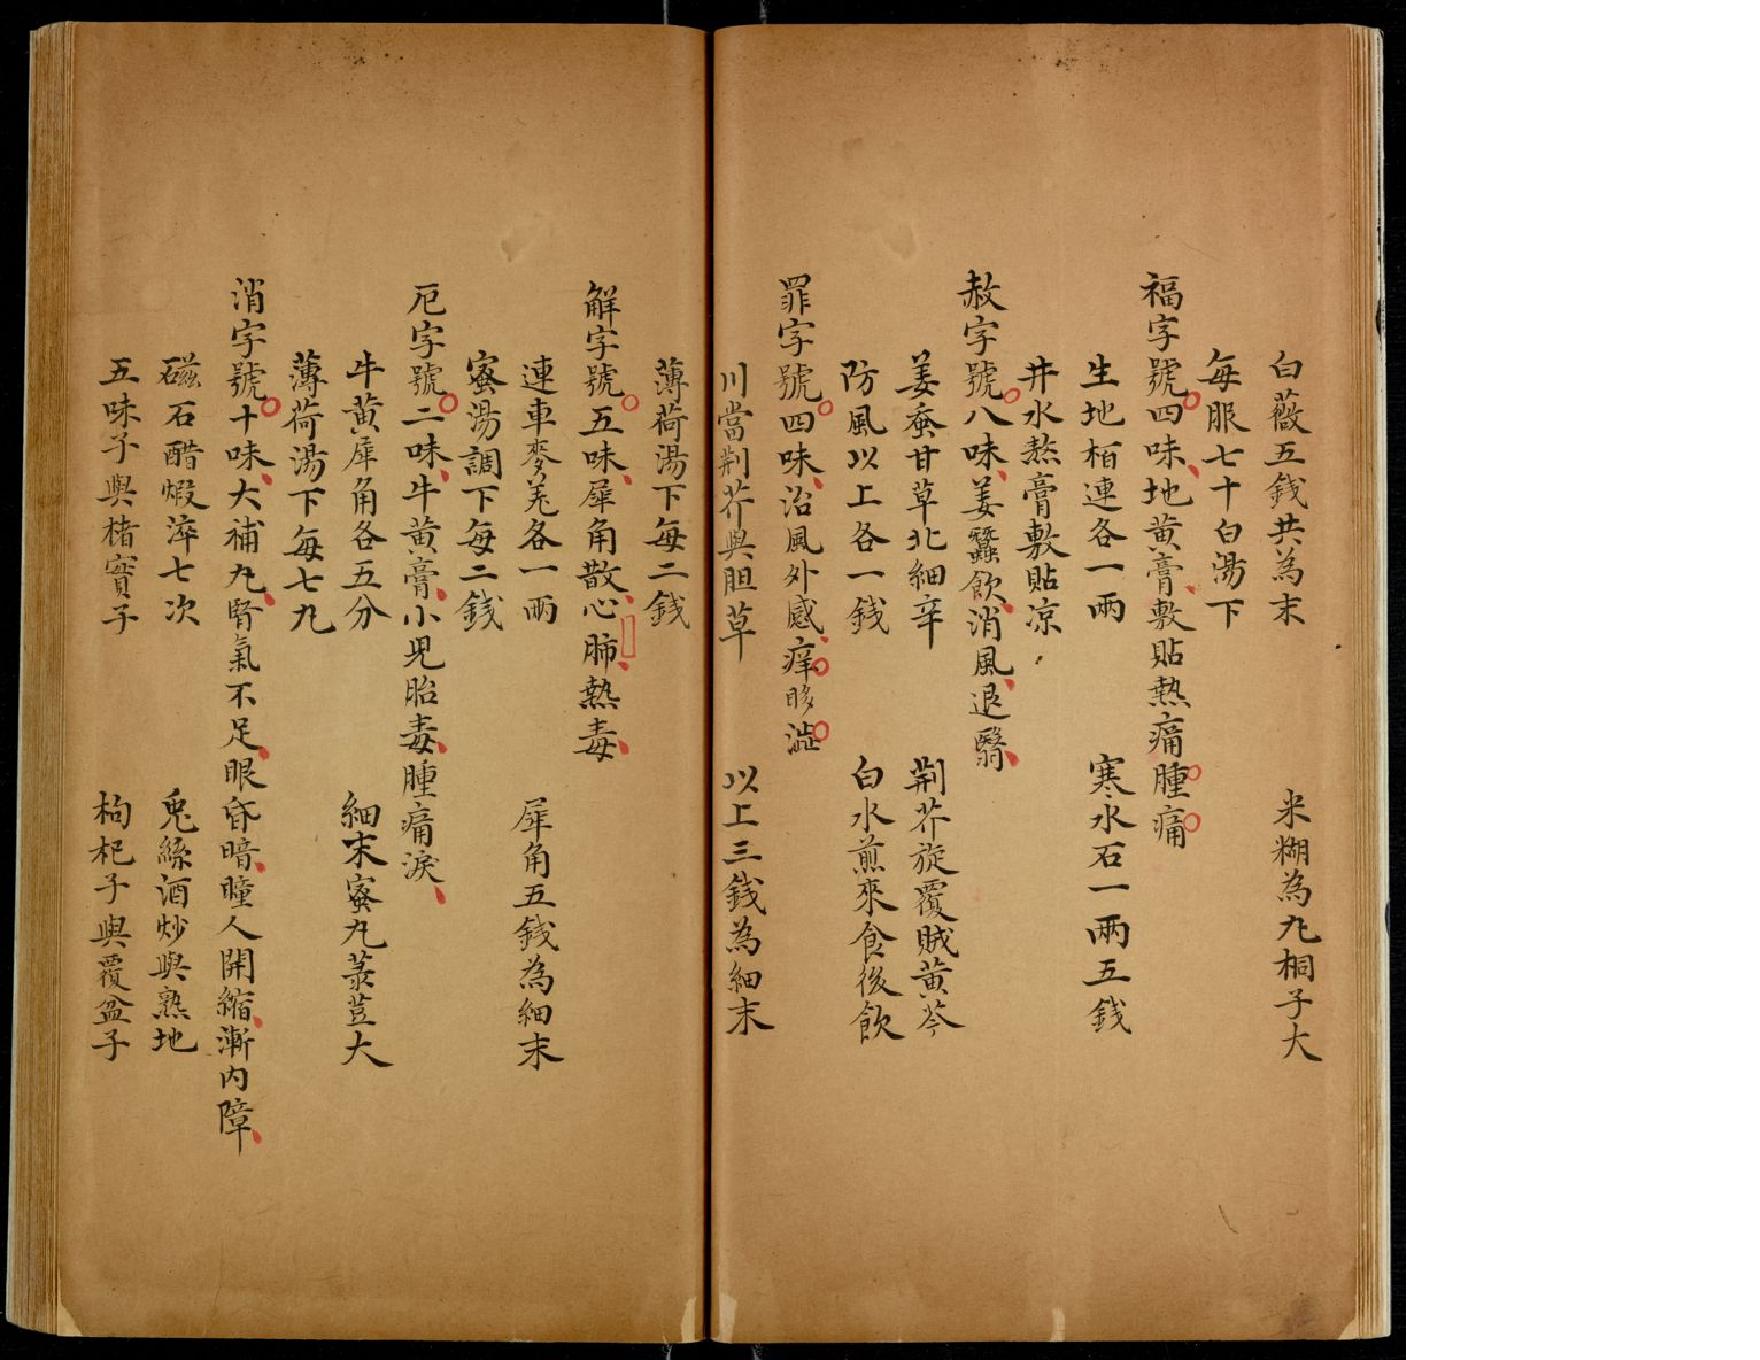 白薇五銭共為末　米糊為丸桐子大
每服七十白湯下
福字號四味地黃膏敷貼熱痛腫痛
生地栢連各一兩　寒水石一兩五銭
井水熬膏敷貼凉
赦字號八味姜蠶飲消風退翳
姜蚕甘草北細辛　荆芥旋覆賊黃芩
防風以上各一銭　白水煎來食後飲
罪字號四味治風外感痒眵澁
川當荆芥與胆草　以上三銭為細末
薄荷湯下每二銭
解字號五味犀角散心肺熱毒
連車麥羌各一兩　犀角五銭為細末
蜜湯調下每二銭
厄字號二味牛黃膏小兒胎毒腫痛淚
牛黃犀角各五分　細末蜜丸菉荳大
薄荷湯下每七丸
消字號十味大補丸腎氣不足眼昏暗瞳人開縮漸內障
磁石醋煆淬七次　兎絲酒炒與熟地
五味子與楮實子　枸杞子與覆盆子